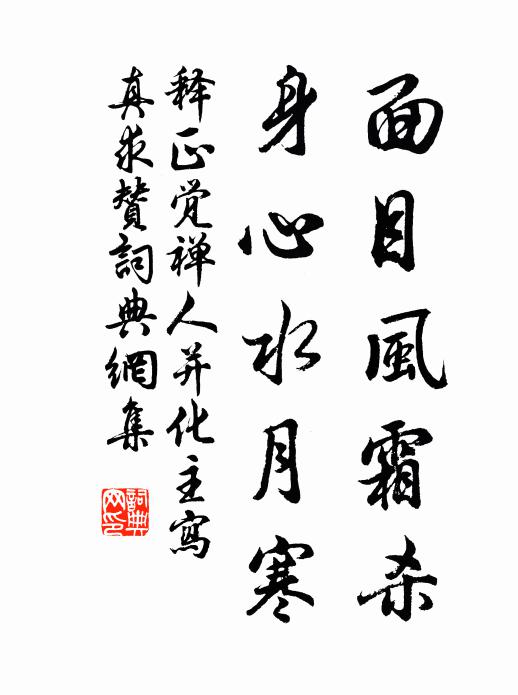 面目風霜杀
身心水月寒
释正觉禅人并化主寫
真求赞詞典網集
詞典网印